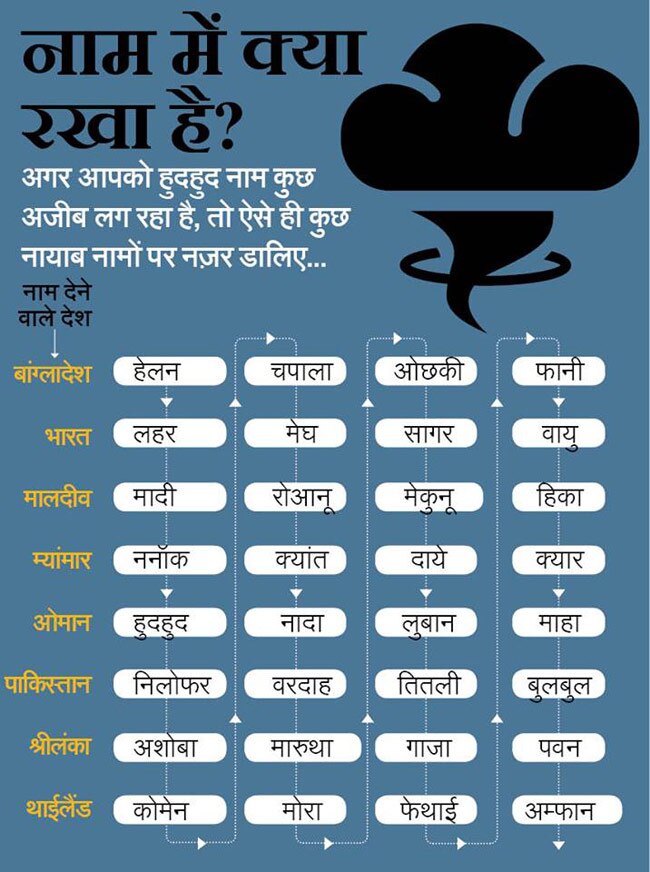 नाम में क्या
रखा है?
अगर आपको हुदहुद नाम कुछ
अजीब लग रहा है, तो ऐसे ही कुछ
नायाब नामों पर नज़र डालिए...
नाम देने
वाले देश
बांग्लादेश हेलन चपाला ओछकी फानी
भारत लहर मेघ सागर वायु
मालदीव मादी रोआनू मेकुनू हिका
म्यांमार ननॉक क्यांत दाये क्यार
ओमान हुदहुद नादा लुबान माहा
पाकिस्तान निलोफर वरदाह तितली बुलबुल
श्रीलंका अशोबा मारुथा गाजा पवन
थाईलैंड कोमेन मोरा फेथाई अम्फान